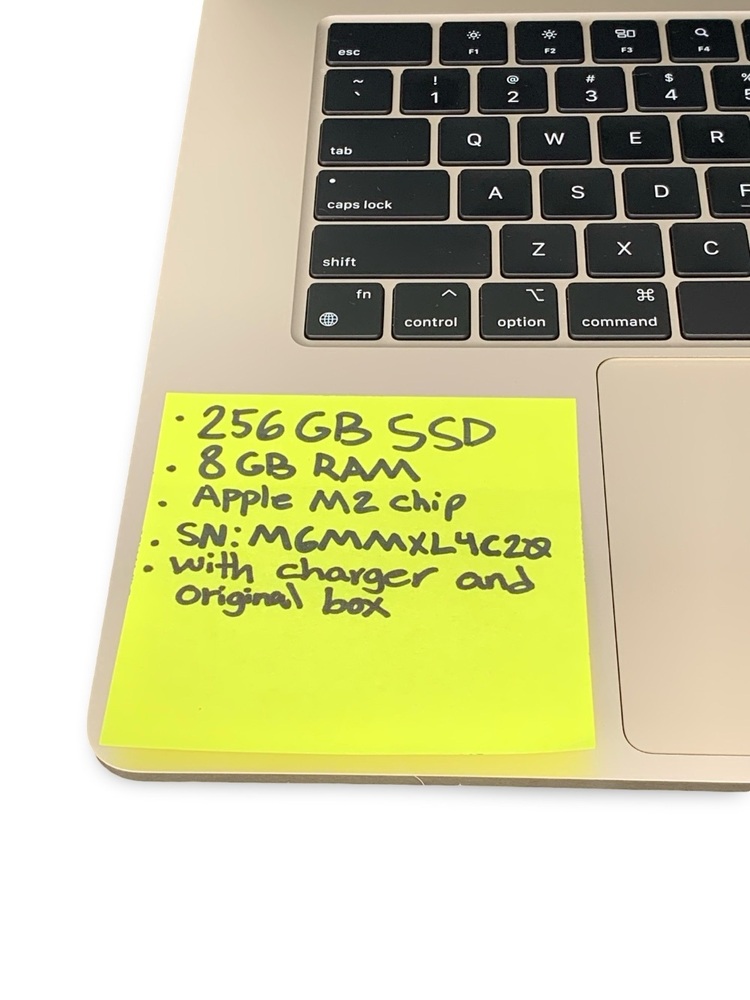 esc F1 F2 F3 F4
~ ` ! 1 @ 2 # 3 $ 4 % 5
tab Q W E R
caps lock A S D F
shift Z X C
fn control option command
⌘
• 256 GB SSD
• 8 GB RAM
• Apple M2 chip
• SN: M6MMXL4C2Q
• with charger and
original box